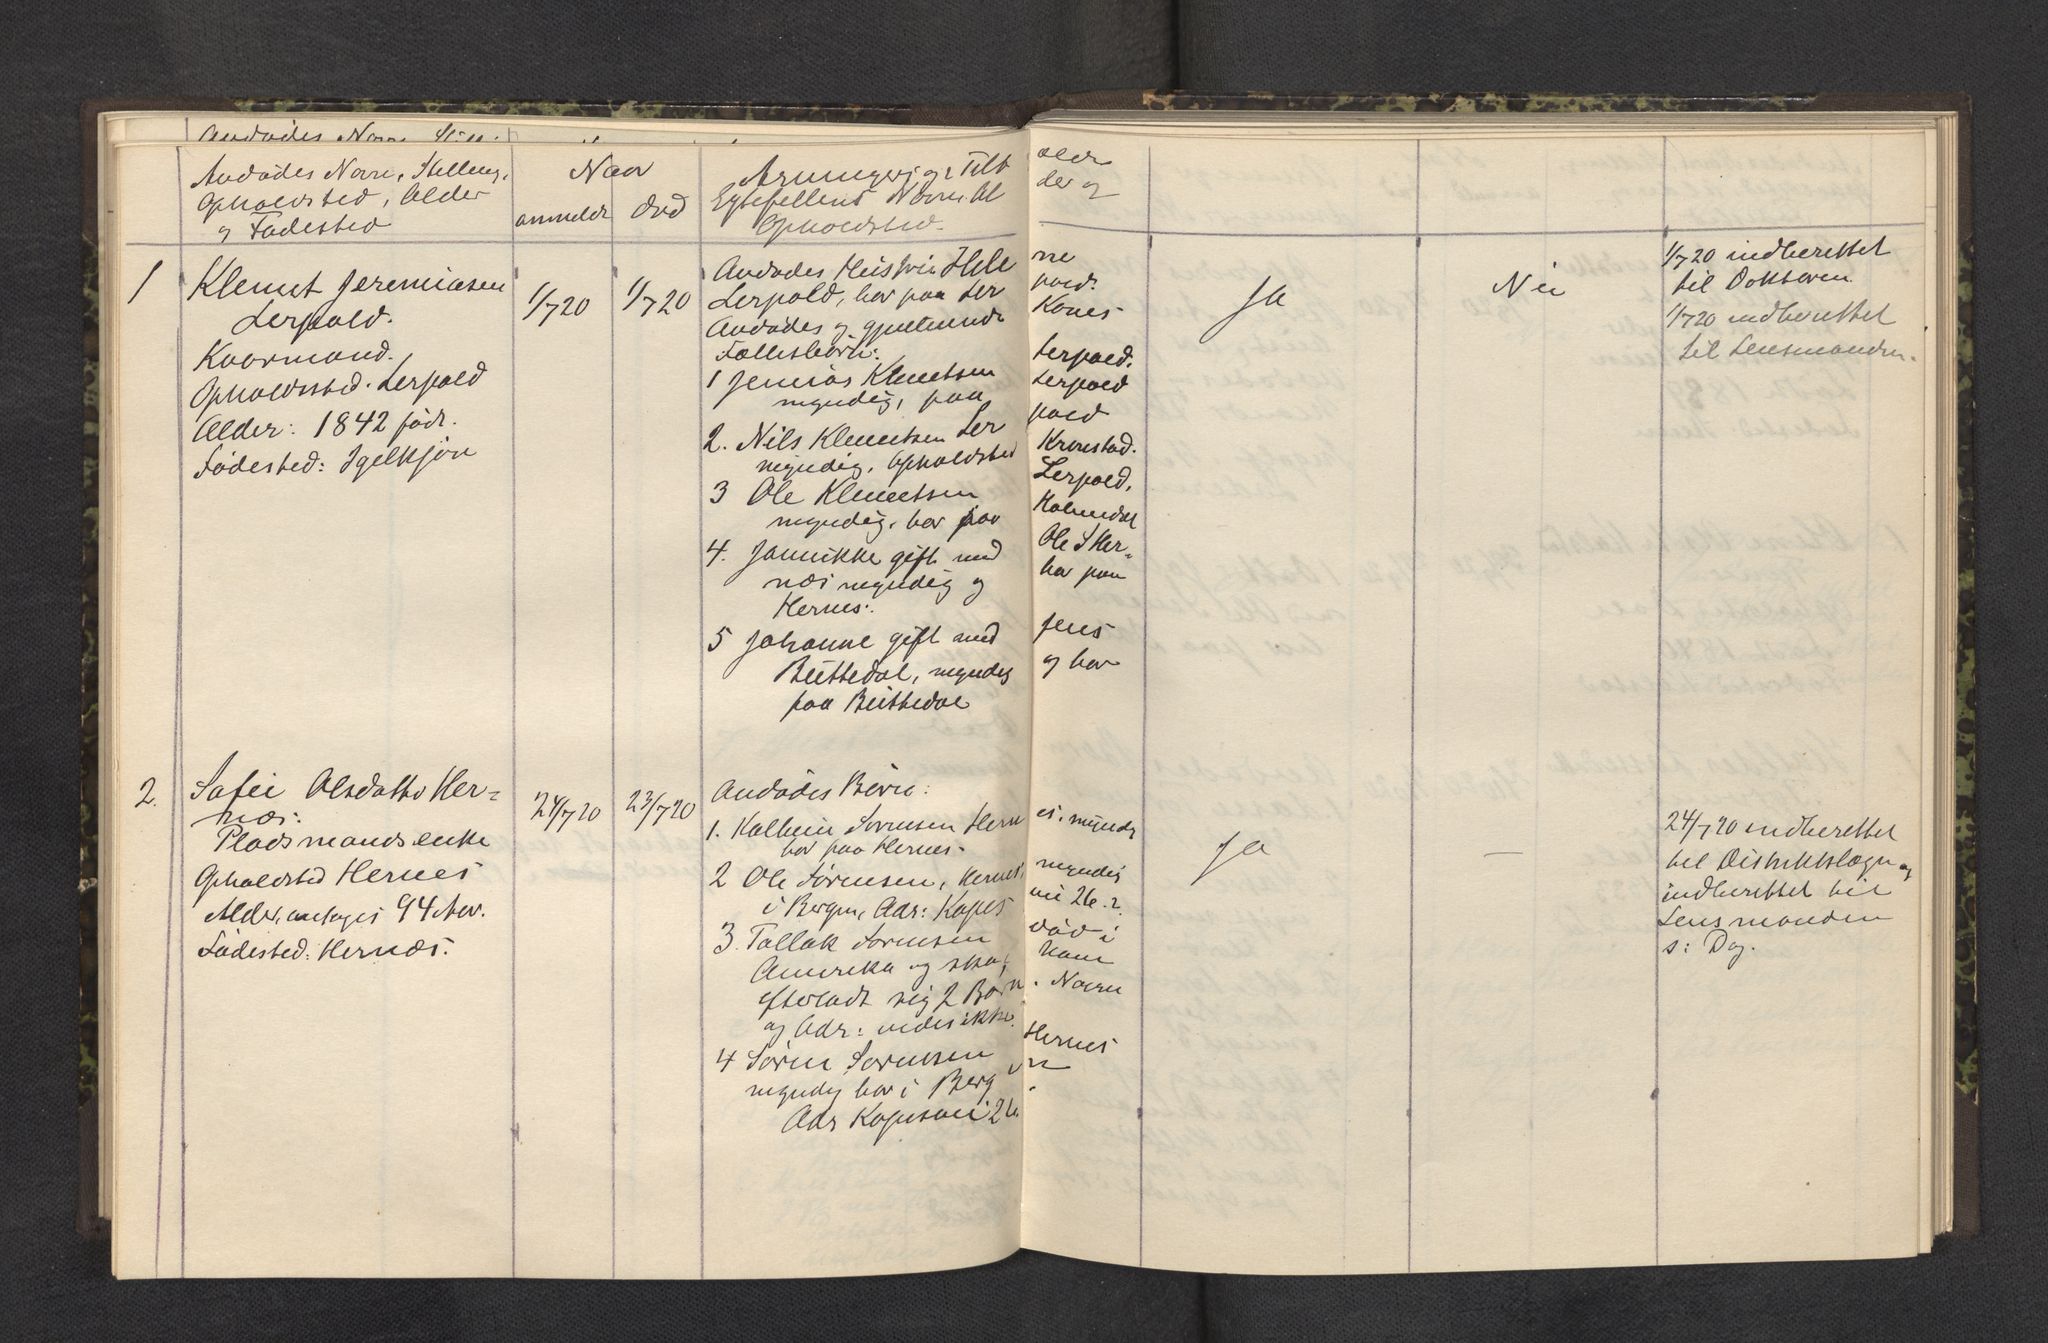 Avdødes Navn, Stilling,
Opholdsted, Alder
og Fødested
Naar
anmeldt
død
Arvingers og
Egtefellens Navn
Opholdsted.
1
Klemet Jeremiasen
Lerpold.
Kaarmand.
Opholdssted. Lerpold
Alder: 1842 født.
Fødested: Igelkjøn
1/7 20
1/7 20
Lerpold, bor paa Ler pold.
Avdødes og gjenlevende Kones
Fællesbørn:
1 Jemias Klemetsen Lerpold.
myndig, paa Lerpold
2. Nils Klemetsen Ler pold
myndig, Opholdsted Kronstad.
3 Ole Klemetsen Lerpold,
myndig, bor paa Holmedal
4. Jannikke gift med Ole S Her-
nes myndig og bor paa
Hernes.
5 Johanne gift med Jens
Bøttedal, myndig og bor
paa Bøttedal
Ja
Nei
1/7 20 indberettet
til Doktoren.
1/7 20 indberettet
til Lensmanden.
2.
Olsdatter Her-
næs:
Pladsmands enke
Opholdsted Hernes
Alder, antages 94 Aar.
Fødested: Hernæs.
24/7 20
23/7 20
Avdødes Børn:
1. Sørensen Hern es. myndig
bor paa Hernes.
2 Ole Sørensen, Hernes, myndig
i Bergen, Adr: 26.
3. Tollak Sørensen død i
Amerika og skal have
efterladt sig 2 Børn. Navn
og Adr: vides ikke.
4 Søren Sørensen Hernes
myndig bor i Berg en
Adr 26.
Ja
—
24/7 20 indberettet
til Distriktslægen og
indberettet til
Lensmanden
s: Dag.